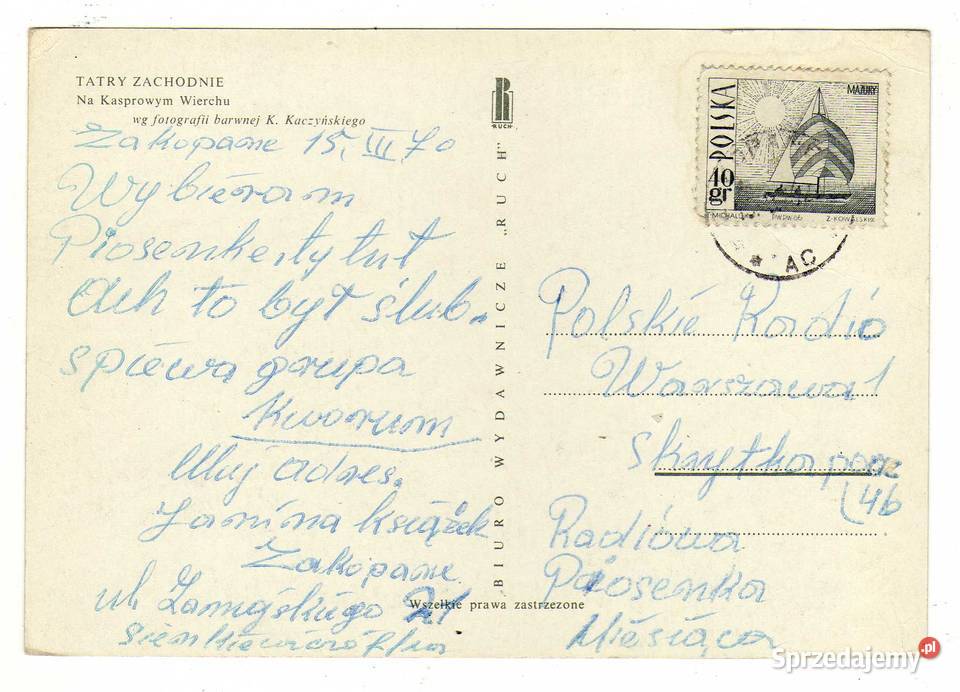 TATRY ZACHODNIE
Na Kasprowym Wierchu
wg fotografii barwnej K. Kaczyńskiego
Zakopane 15. III 70
Wybieram
Piosenke tytut
Ach to był ślub.
spiewa grupa
Kworum
Muj adres.
Janina książek
Zakopane
ul.
BIURO WYDAWNICZE „RUCH”
RUCH
Wszelkie prawa zastrzeżone
POLSKA
MAZURY
40 gr
PWPW 66
Z. KOWALSKI
AC
Polskie Radio
Warszawa 1
Skrytka pocz
46
Radiowa
Piosenka
Miesiąca
Sprzedajemy.pl